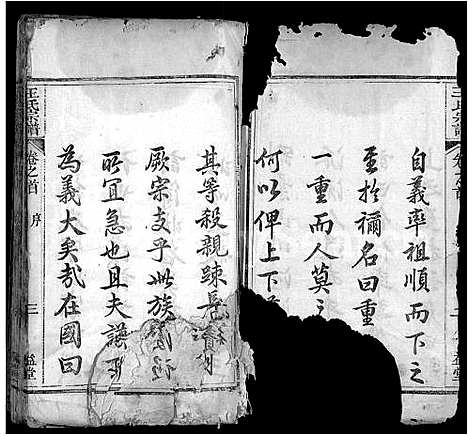 王氏宗譜
自義率祖順而下之
至於禰名曰重
一重而人莫
何以俾上下
王氏宗譜
卷之首
序
三
益堂
其等殺親踈長
厥宗支乎此族
所宜急也且夫譜
為義大矣哉在國曰